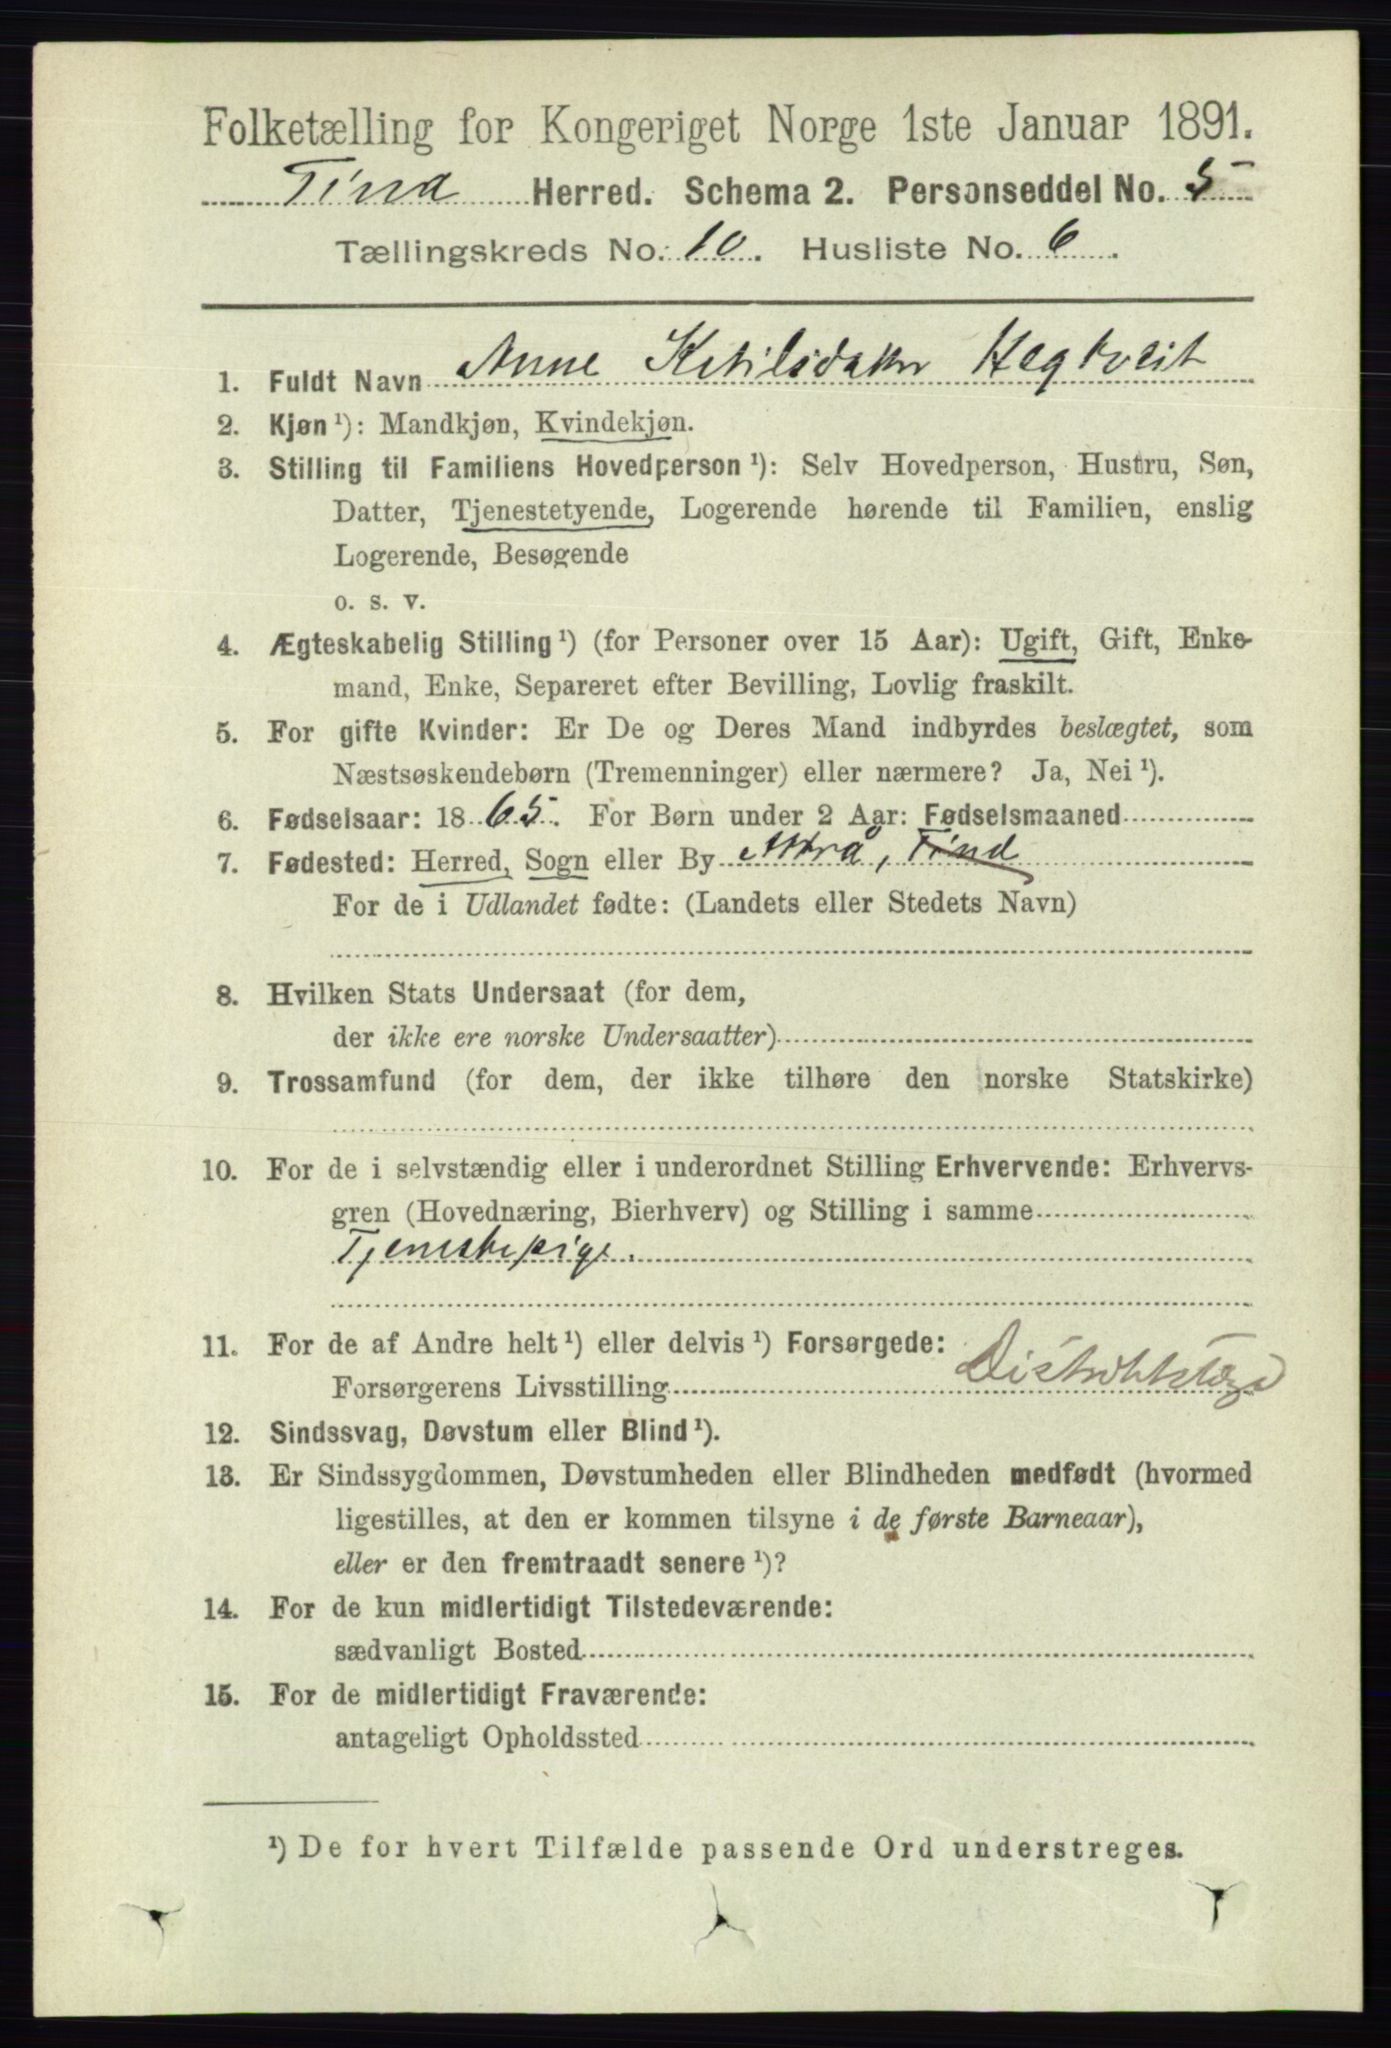 Folketælling for Kongeriget Norge 1ste Januar 1891.
Tind Herred. Schema 2. Personseddel No. 5
Tællingskreds No. 10. Husliste No. 6.
1. Fuldt Navn Anne Ketilsdatter Hegtveit
2. Kjøn¹): Mandkjøn, Kvindekjøn.
3. Stilling til Familiens Hovedperson¹): Selv Hovedperson, Hustru, Søn,
Datter, Tjenestetyende, Logerende hørende til Familien, enslig
Logerende, Besøgende
o. s. v.
4. Ægteskabelig Stilling¹) (for Personer over 15 Aar): Ugift, Gift, Enke-
mand, Enke, Separeret efter Bevilling, Lovlig fraskilt.
5. For gifte Kvinder: Er De og Deres Mand indbyrdes beslægtet, som
Næstsøskendebørn (Tremenninger) eller nærmere? Ja, Nei¹).
6. Fødselsaar: 1865. For Børn under 2 Aar: Fødselsmaaned
7. Fødested: Herred, Sogn eller By Attrå, Tind
For de i Udlandet fødte: (Landets eller Stedets Navn)
8. Hvilken Stats Undersaat (for dem,
der ikke ere norske Undersaatter)
9. Trossamfund (for dem, der ikke tilhøre den norske Statskirke)
10. For de i selvstændig eller i underordnet Stilling Erhvervende: Erhvervs-
gren (Hovednæring, Bierhverv) og Stilling i samme
Tjenestepige.
11. For de af Andre helt¹) eller delvis¹) Forsørgede:
Forsørgerens Livsstilling Distriktslæge
12. Sindssvag, Døvstum eller Blind¹).
13. Er Sindssygdommen, Døvstumheden eller Blindheden medfødt (hvormed
ligestilles, at den er kommen tilsyne i de første Barneaar),
eller er den fremtraadt senere¹)?
14. For de kun midlertidigt Tilstedeværende:
sædvanligt Bosted
15. For de midlertidigt Fraværende:
antageligt Opholdssted
¹) De for hvert Tilfælde passende Ord understreges.